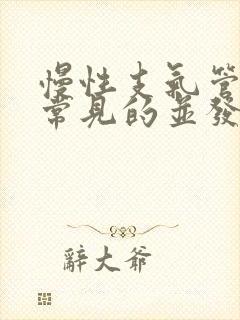 慢性支氣管
常見的並發
辭大爺